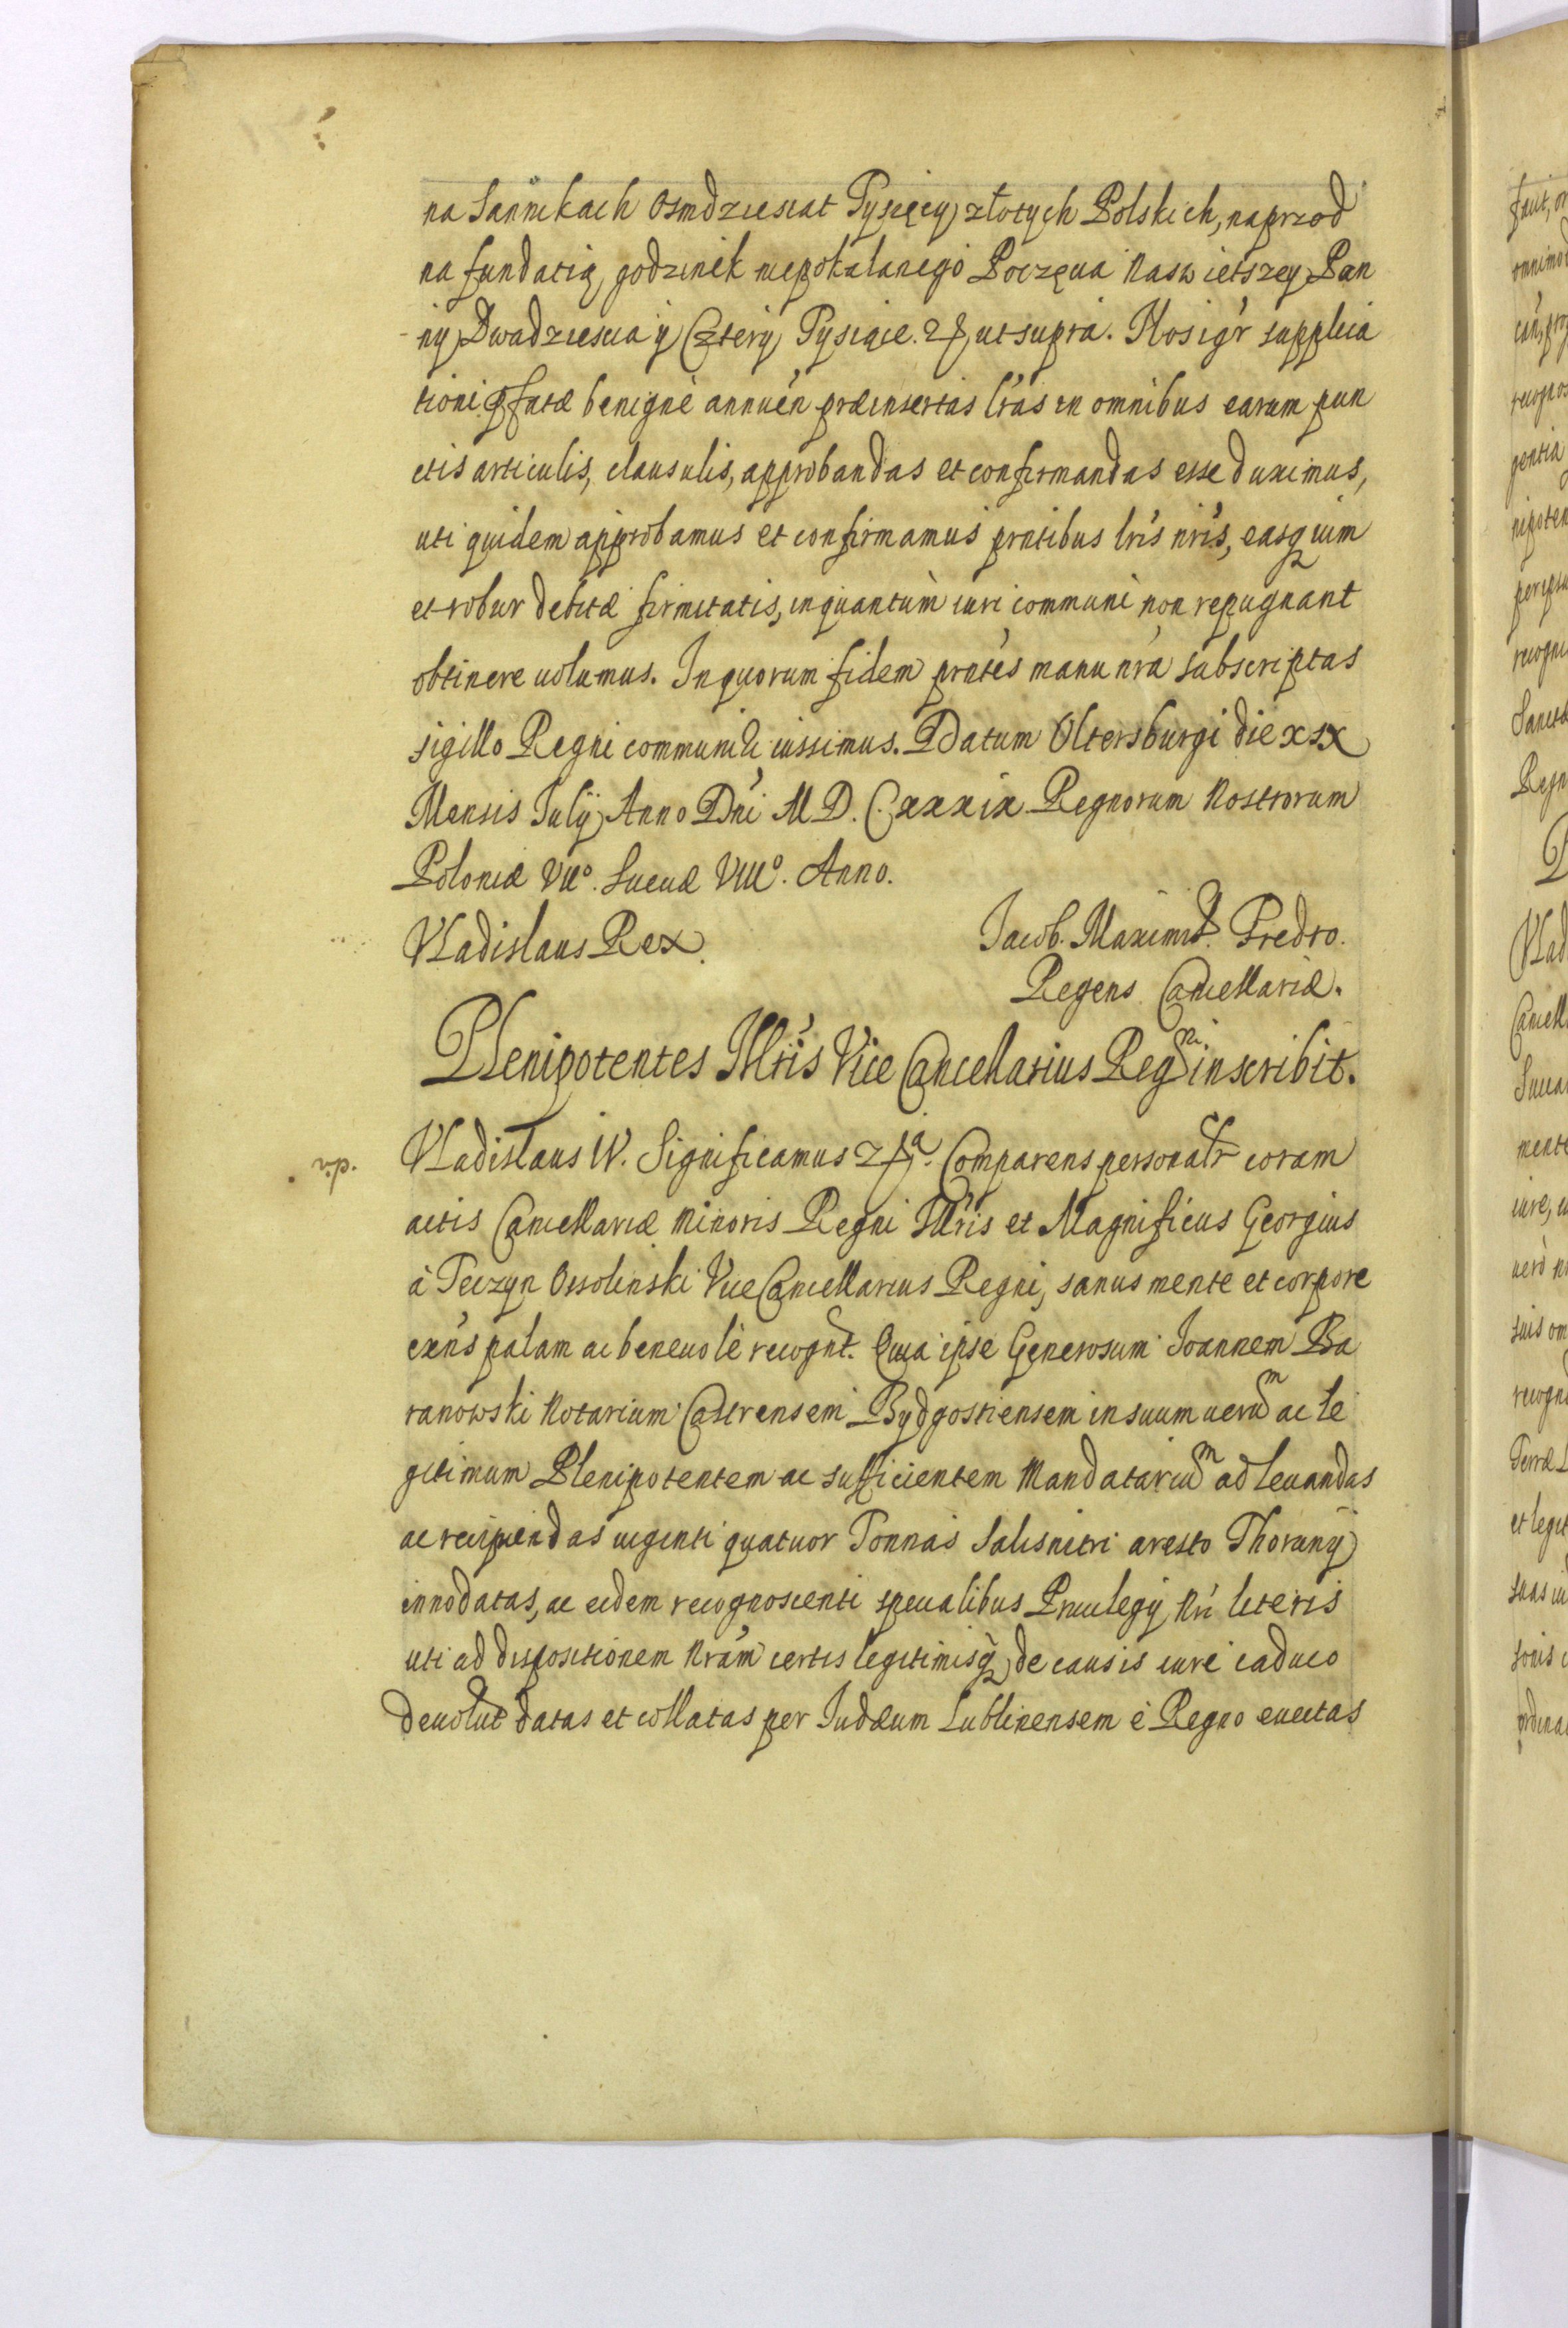 na Sannikach Osmdziesiat Tysięcy złotych Polskich, naprzod
na fundatią godzinek niepokalanego Poczęcia Naswietszey Pan
ny Dwadziescia y Cztery Tysiące. etc ut supra. Nos igr supplica
tioni pfatæ benigne annuen præinsertas lras in omnibus earum pun
ctis articulis, clausulis, approbandas et confirmandas esse duximus,
uti quidem approbamus et confirmamus prntibus lris nris, easq uim
et robur debitæ firmitatis, inquantum iuri communi non repugnant
obtinere uolumus. In quorum fidem prntes manu nra subscriptas
sigillo Regni communiri iussimus. Datum Oltersburgi die xix
Mensis Julij Anno Dni M D. C. xxxix Regnorum Nostrorum
Poloniæ VII°. Sueciæ VIII°. Anno.
Vladislaus Rex.
Jacob. Maximil. Fredro.
Regens Cancellariæ.
Plenipotentes Illris Vice Cancellarius Regni inscribit.
v.p.
Vladislaus IV. Significamus etca. Comparens personalr coram
actis Cancellariæ Minoris Regni Illris et Magnificus Georgius
à Teczyn Ossolinski Vice Cancellarius Regni, sanus mente et corpore
exns palam ac beneuolè recognt. Quia ipse Generosum Joannem Ba
ranowski Notarium Castrensem Bydgostiensem in suum uerum ac le
gitimum Plenipotentem ac sufficientem Mandatarium ad leuandas
ac recipiendas uiginti quatuor Tonnas Salisnitri aresto Thorunij
innodatas, ac eidem recognoscenti specialibus Priuilegij Nri literis
uti ad dispositionem Nram certis legitimisq de causis iure caduco
deuolut datas et collatas per Judæum Lublinensem è Regno euectas